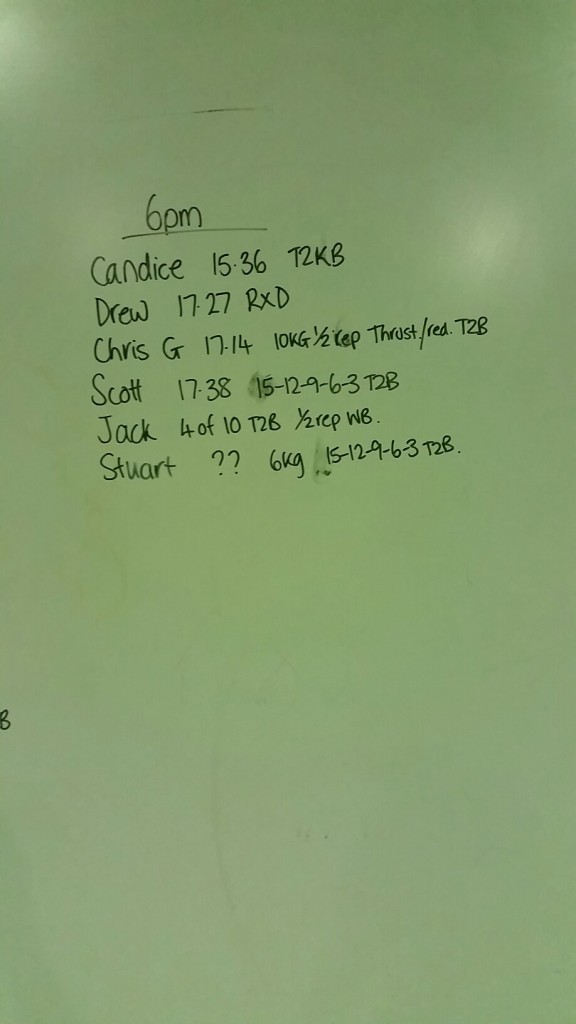 6pm
Candice 15.36 T2KB
Drew 17.27 RXD
Chris G 17.14 10KG 1/2 rep Thrust./red. T2B
Scott 17.38 15-12-9-6-3 T2B
Jack 4 of 10 T2B 1/2 rep WB.
Stuart ?? 6kg 15-12-9-6-3 T2B.
B